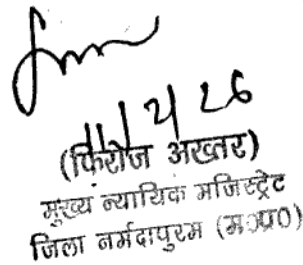 11/4/26
(फिरोज अख्तर)
मुख्य न्यायिक मजिस्ट्रेट
जिला नर्मदापुरम (म०प्र०)